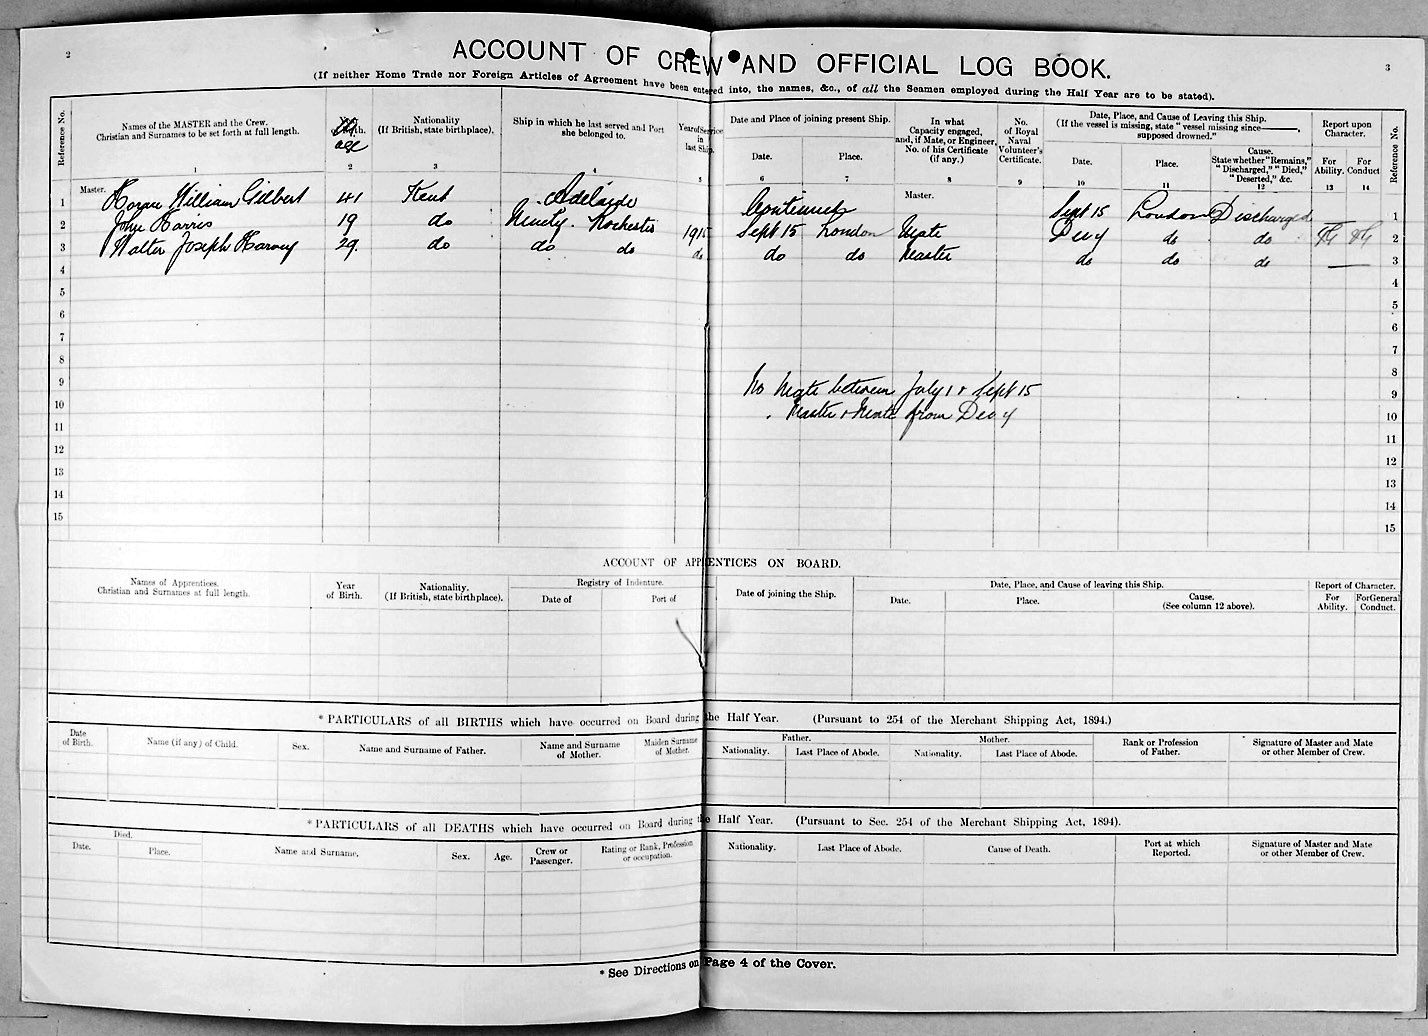 2
3
ACCOUNT OF CREW AND OFFICIAL LOG BOOK.
(If neither Home Trade nor Foreign Articles of Agreement have been entered into, the names, &c., of all the Seamen employed during the Half Year are to be stated).
Reference No.
Names of the MASTER and the Crew.
Christian and Surnames to be set forth at full length.
1
age
2
Nationality
(If British, state birthplace).
3
Ship in which he last served and Port
she belonged to.
4
Year of Service
in
last Ship.
5
Date and Place of joining present Ship.
Date.
6
Place.
7
In what
Capacity engaged,
and, if Mate, or Engineer,
No. of his Certificate
(if any.)
8
No.
of Royal
Naval
Volunteer's
Certificate.
9
Date, Place, and Cause of Leaving this Ship.
(If the vessel is missing, state "vessel missing since———,
supposed drowned."
Date.
10
Place.
11
Cause.
State whether "Remains,"
"Discharged," "Died,"
"Deserted," &c.
12
Report upon
Character.
For
Ability.
13
For
Conduct
14
Reference No.
1 Master. Horace William Gilbert 41 Kent Adelaide Continues Master. Sept 15 London Discharged 1
2 John Harris 19 do Ninety. Rochester 1915 Sept 15 London Mate do do VG VG 2
3 Walter Joseph Harvey 29 do do do do do do Master do do do — 3
4 4
5 5
6 6
7 7
8 8
9 No Mate between July 1 & Sept 15 9
10 Master & Mate from 10
11 11
12 12
13 13
14 14
15 15
ACCOUNT OF APPRENTICES ON BOARD.
Names of Apprentices.
Christian and Surnames at full length.
Year
of Birth.
Nationality.
(If British, state birthplace).
Registry of Indenture.
Date of
Port of
Date of joining the Ship.
Date, Place, and Cause of leaving this Ship.
Date.
Place.
Cause.
(See column 12 above).
Report of Character.
For
Ability.
For General
Conduct.
* PARTICULARS of all BIRTHS which have occurred on Board during the Half Year. (Pursuant to 254 of the Merchant Shipping Act, 1894.)
Date
of Birth.
Name (if any) of Child.
Sex.
Name and Surname of Father.
Name and Surname
of Mother.
Maiden Surname
of Mother.
Father.
Nationality.
Last Place of Abode.
Mother.
Nationality.
Last Place of Abode.
Rank or Profession
of Father.
Signature of Master and Mate
or other Member of Crew.
* PARTICULARS of all DEATHS which have occurred on Board during the Half Year. (Pursuant to Sec. 254 of the Merchant Shipping Act, 1894).
Died.
Date.
Place.
Name and Surname.
Sex.
Age.
Crew or
Passenger.
Rating or Rank, Profession
or occupation.
Nationality.
Last Place of Abode.
Cause of Death.
Port at which
Reported.
Signature of Master and Mate
or other Member of Crew.
* See Directions on Page 4 of the Cover.